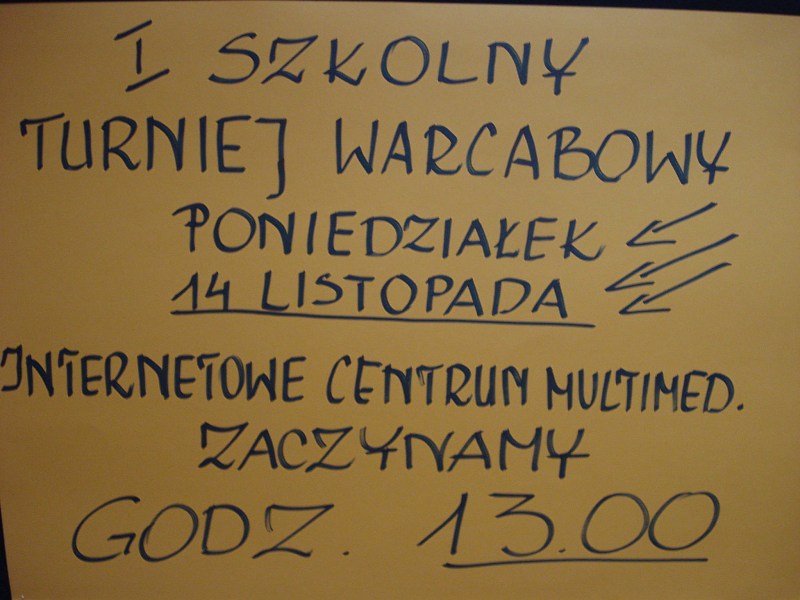 I SZKOLNY
TURNIEJ WARCABOWY
PONIEDZIAŁEK
14 LISTOPADA
INTERNETOWE CENTRUM MULTIMED.
ZACZYNAMY
GODZ. 13.00